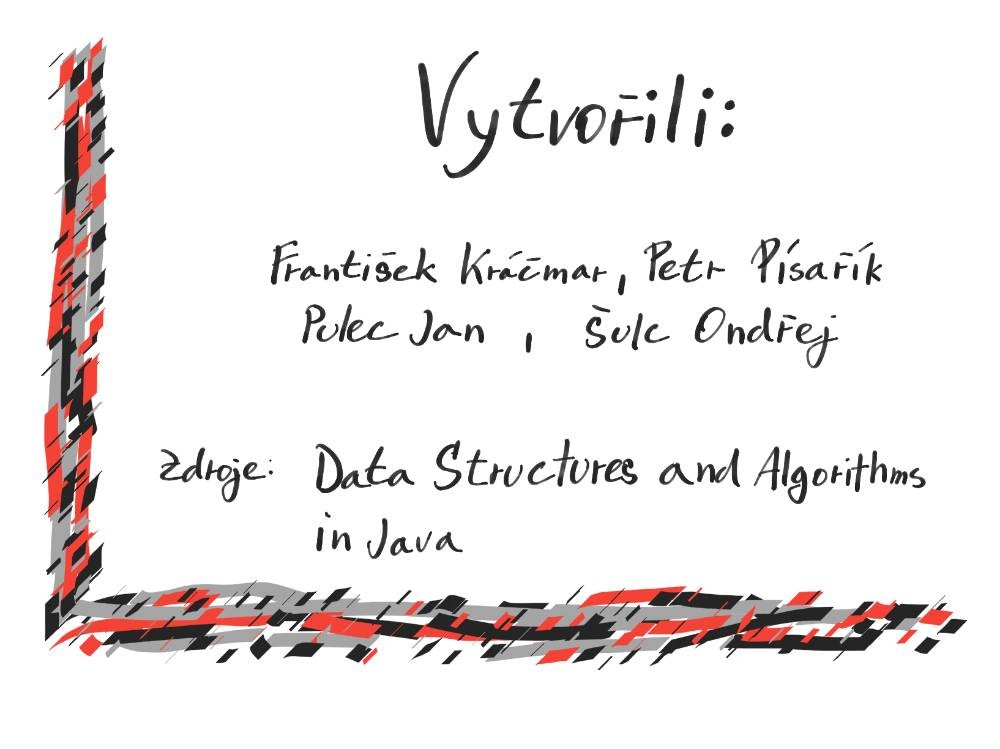 Vytvořili:
František Kráčmar, Petr Písařík
Pulec Jan , Šulc Ondřej
Zdroje: Data Structures and Algorithms
in Java